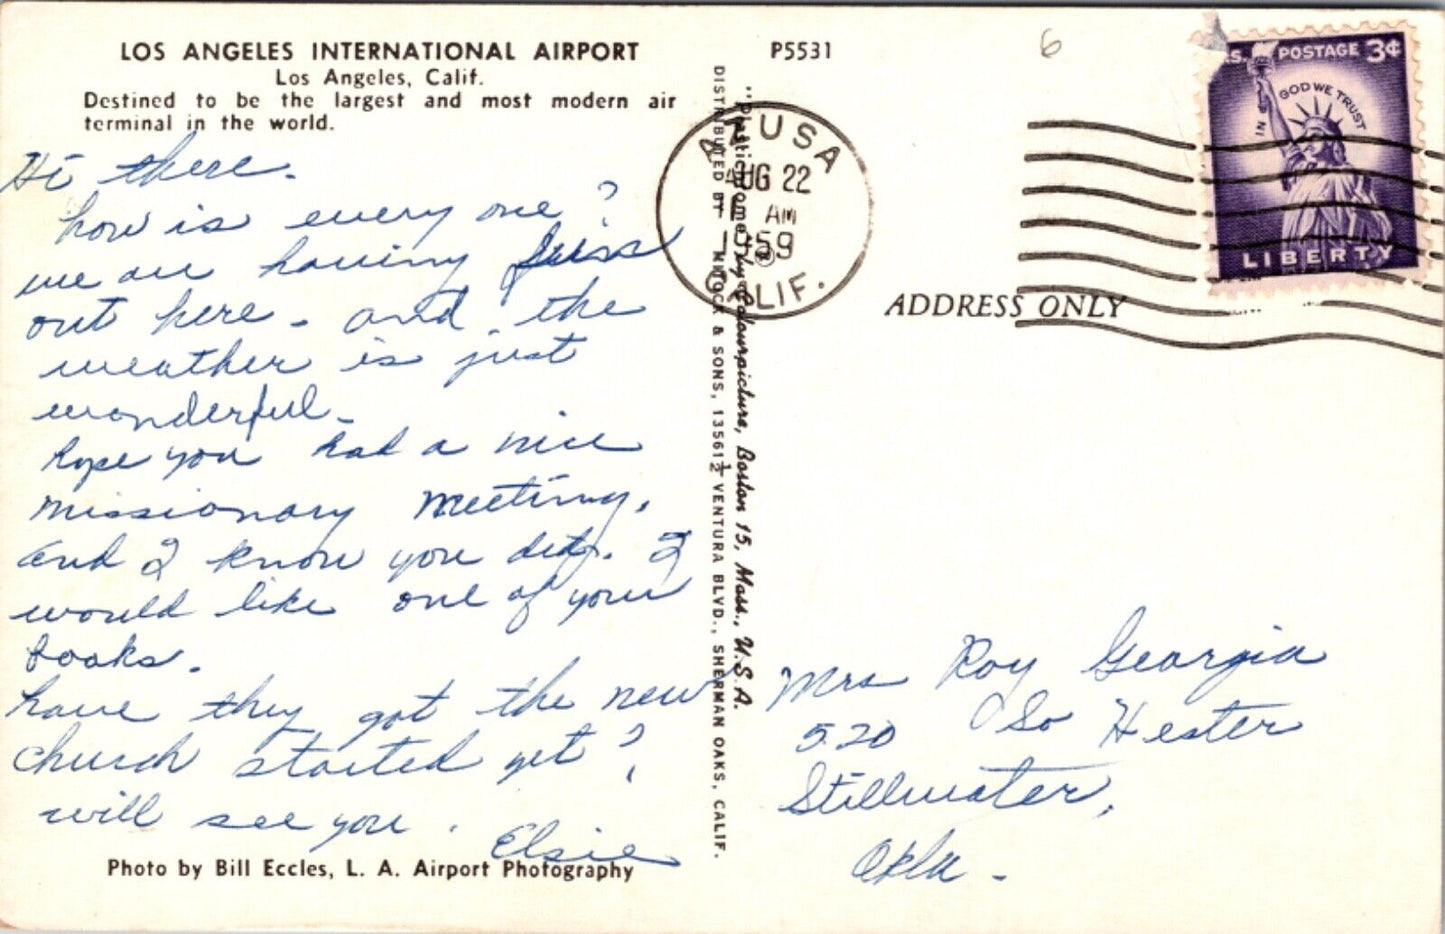 LOS ANGELES INTERNATIONAL AIRPORT
Los Angeles, Calif.
Destined to be the largest and most modern air
terminal in the world.
Hi there.
how is every one?
we are having fun
out here. and the
weather is just
wonderful.
hope you had a nice
missionary meeting,
and I know you did. I
would like one of your
books.
have they got the new
church started yet?
will see you.
Elsie
Photo by Bill Eccles, L. A. Airport Photography
P5531
"Plastichrome" ® by Colourpicture, Boston 15, Mass., U.S.A.
DISTRIBUTED BY MITOCK & SONS, 13561½ VENTURA BLVD., SHERMAN OAKS, CALIF.
6
AZUSA
AUG 22
AM
1959
CALIF.
U.S. POSTAGE 3¢
IN GOD WE TRUST
LIBERTY
ADDRESS ONLY
Mrs Roy Georgia
520 So Hester
Stillwater,
Okla.